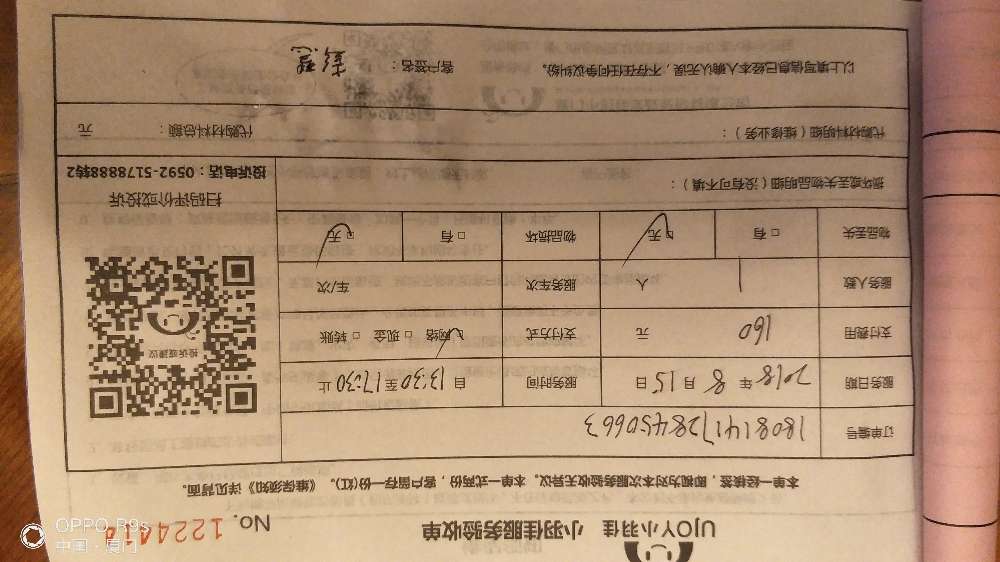 UJOY小羽佳 小羽佳服务验收单
No.
本单一经核签，即视为对本次服务验收无异议。本单一式两份，客户留存一份(红)。《维保须知》详见背面。
订单编号 18081417284550663
服务日期 2018年8月15日 服务时间 自13:30至17:30止
支付费用 160 元 支付方式 网络 现金 转账
服务人数 1 人 服务车次 车/次
物品丢失 有 无 物品损坏 有 无
投诉或建议
扫码评价或投诉
投诉电话：0592-5178888转2
损坏或丢失物品明细（没有可不填）：
代购材料明细（维修业务）： 代购材料总额： 元
以上填写信息已经本人确认无误，不存在任何争议纠纷。 客户签名：
OPPO R9s
中国·厦门